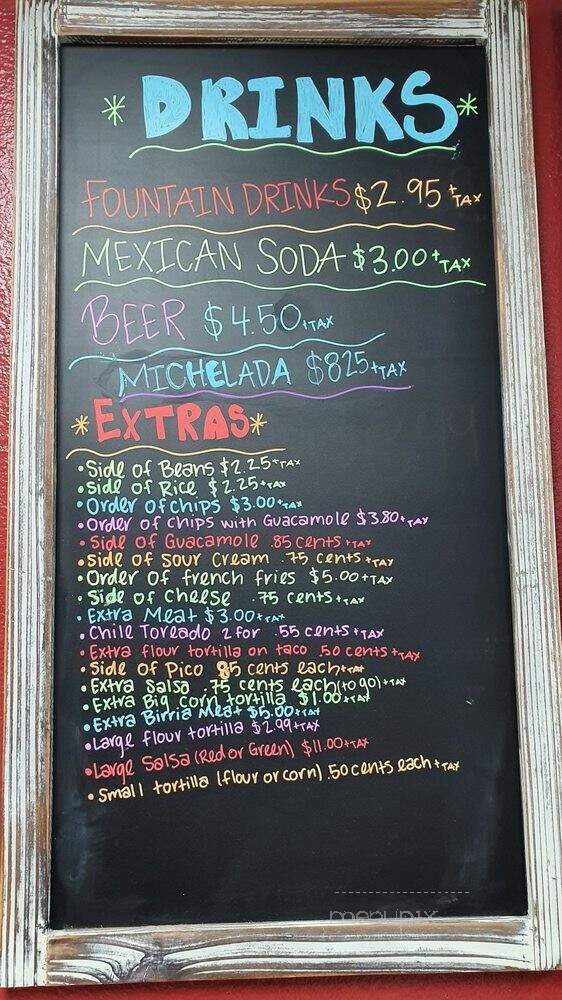 * DRINKS *
FOUNTAIN DRINKS $2.95 +TAX
MEXICAN SODA $3.00 +TAX
BEER $4.50 +TAX
MICHELADA $825 +TAX
* EXTRAS *
• Side of Beans $2.25 +TAX
• Side of Rice $2.25 +TAX
• Order of chips $3.00 +TAX
• Order of chips with Guacamole $3.80 +TAX
• Side of Guacamole .85 cents +TAX
• Side of Sour Cream .75 cents +TAX
• Order of french fries $5.00 +TAX
• Side of Cheese .75 cents +TAX
• Extra Meat $3.00 +TAX
• Chile Toreado 2 for .55 cents +TAX
• Extra flour tortilla on taco .50 cents +TAX
• Side of Pico 85 cents each +TAX
• Extra Salsa .75 cents each (to go) +TAX
• Extra Big Corn tortilla $1.00 +TAX
• Extra Birria Meat $5.00 +TAX
• Large flour tortilla $2.99 +TAX
• Large Salsa (Red or Green) $11.00 +TAX
• Small tortilla (flour or corn) .50 cents each +TAX
menupix